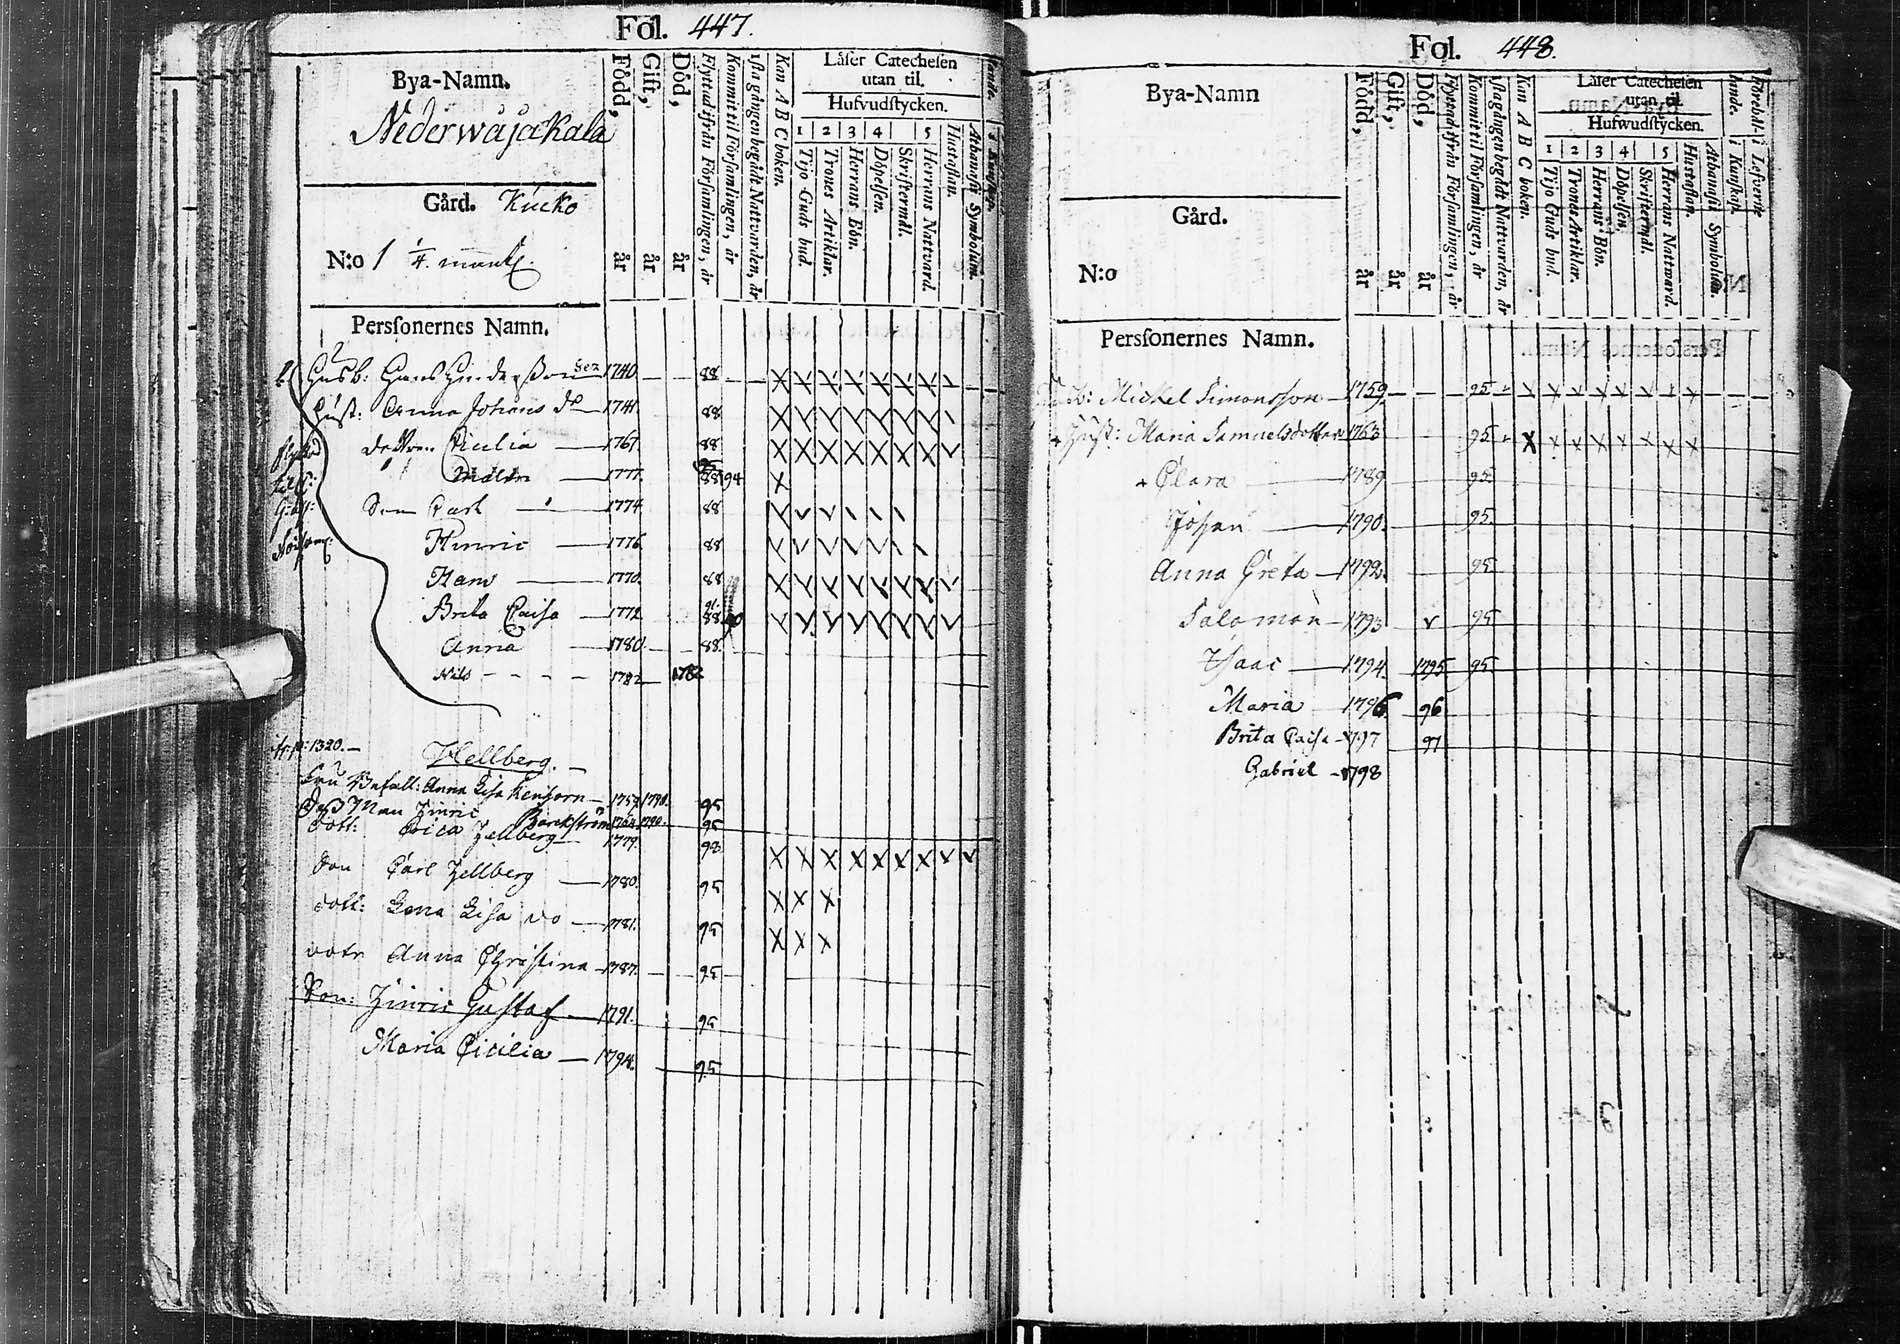 Fol. 447.
Bya-Namn.
Nederwåjakala
Gård. Kucko
N:o 1 1/4. mantl.
Persſonernes Namn.
Född, år
Gift, år
Död, år
Flyttad ifrån Församlingen, år
Kommit til Församlingen, år
1sta gången begådt Nattvarden, år
Kan A B C boken.
Läſer Catecheſen
utan til.
Hufvudſtycken.
1 2 3 4 5
Tijo Guds bud.
Trones Artiklar.
Herrans Bön.
Döpelſen.
Skriftermål.
Herrans Nattvard.
Huſtaflan.
Athanaſii Symbolum.
Husb: Hans Hindersson Sen 1740. 88
Hust: Anna Johans dr 1741. 88
Dottren Cicilia 1767. 88
1777. 88 94
Son Carl 1774 88
Hinric 1776 88
Hans 1770. 88
Brita Caisa 1772 91. 88
Anna 1780. 88.
Nils 1782 1782
N:o: 1320.
Hellberg.
Anna Lisa 1757. 1790. 95
Man Hinric Backström 1790. 95
Dott: Erica Hellberg 1779. 98
Son Carl Hellberg 1780. 95
Dott: Lena Lisa do 1781. 95
dotr Anna Christina 1787. 95
Son: Hinric Gustaf 1791. 95
Maria Cicilia 1794. 95
Fol. 448.
Bya-Namn
Gård.
N:o
Persſonernes Namn.
Född, år
Gift, år
Död, år
Flyttad ifrån Församlingen, år
Kommit til Församlingen, år
1sta gången begådt Nattvarden, år
Kan A B C boken.
Läſer Catecheſen
utan til
Hufwudſtycken.
1 2 3 4 5
Tijo Gud bud.
Trones Artiklar.
Herrans Bön.
Döpelſen.
Skriftermål.
Herrans Nattward.
Huſtaflan.
Athanaſii Symbolum.
i Kunſkap.
i Lefverne
Michel Simonsson 1759. 95
Hust: Maria Samuelsdotter 1763 95
Clara 1789 95
Johan 1790. 95
Anna Greta 1792. 95
Salomon 1793 95
Isaac 1794. 1795 95
Maria 1796 96
Brita Caisa 1797 97
Gabriel 1798